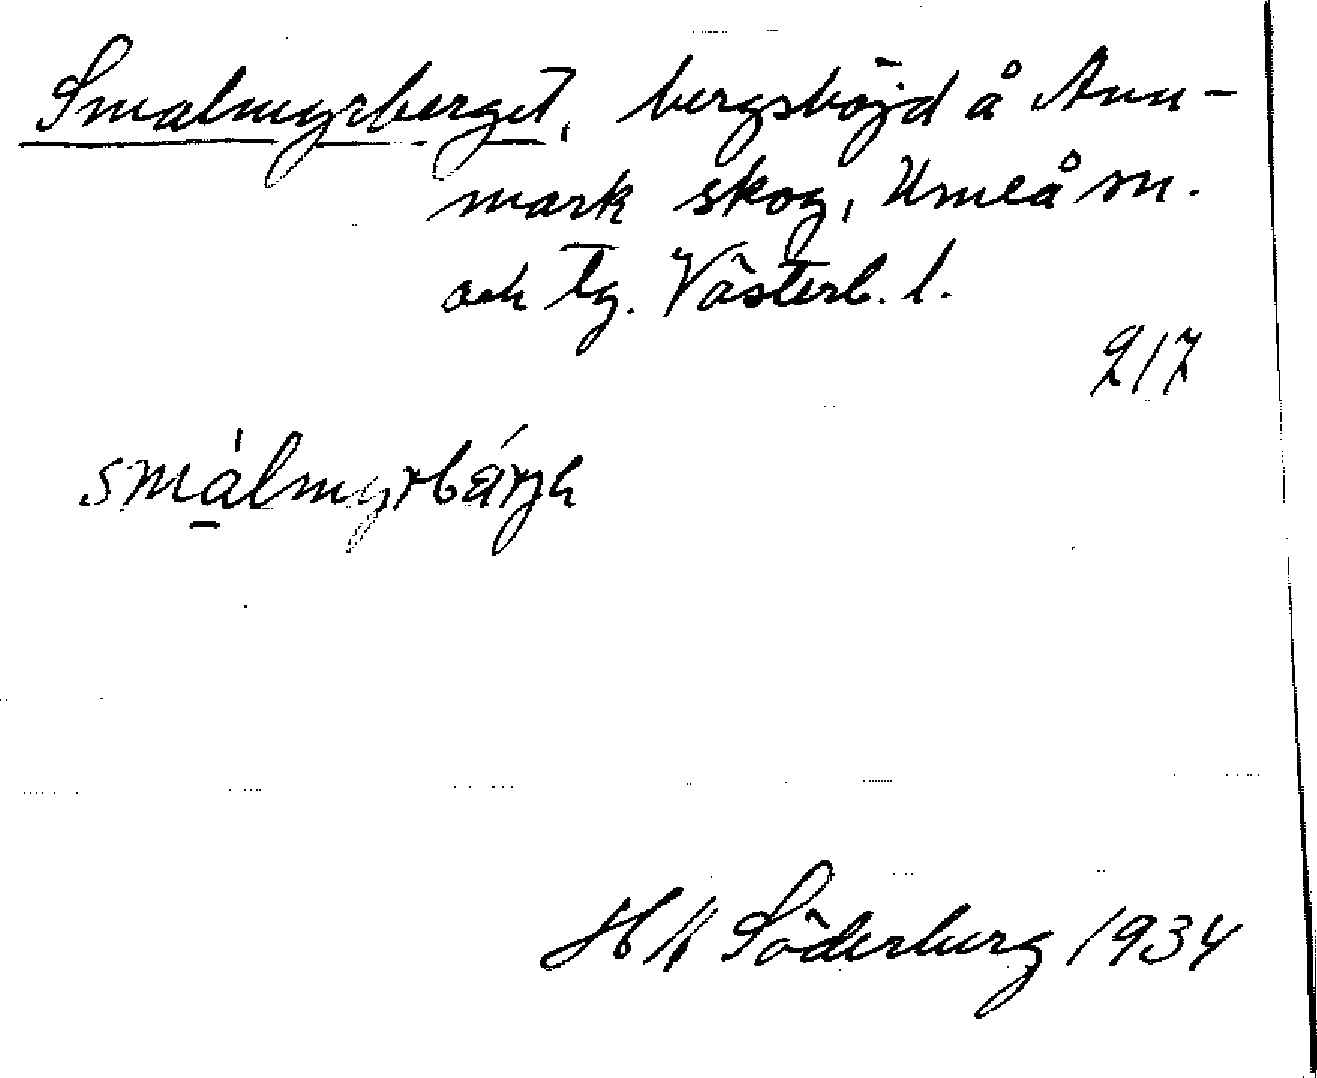 Smalmyrberget, bergshöjd å Ann-
mark skog, Umeå sn.
och tg. Västerb. l.
217
smálmyrbárjh
H Söderberg 1934